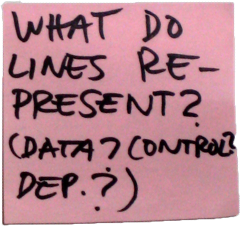 WHAT DO
LINES RE-
PRESENT?
(DATA? CONTROL?
DEP.?)